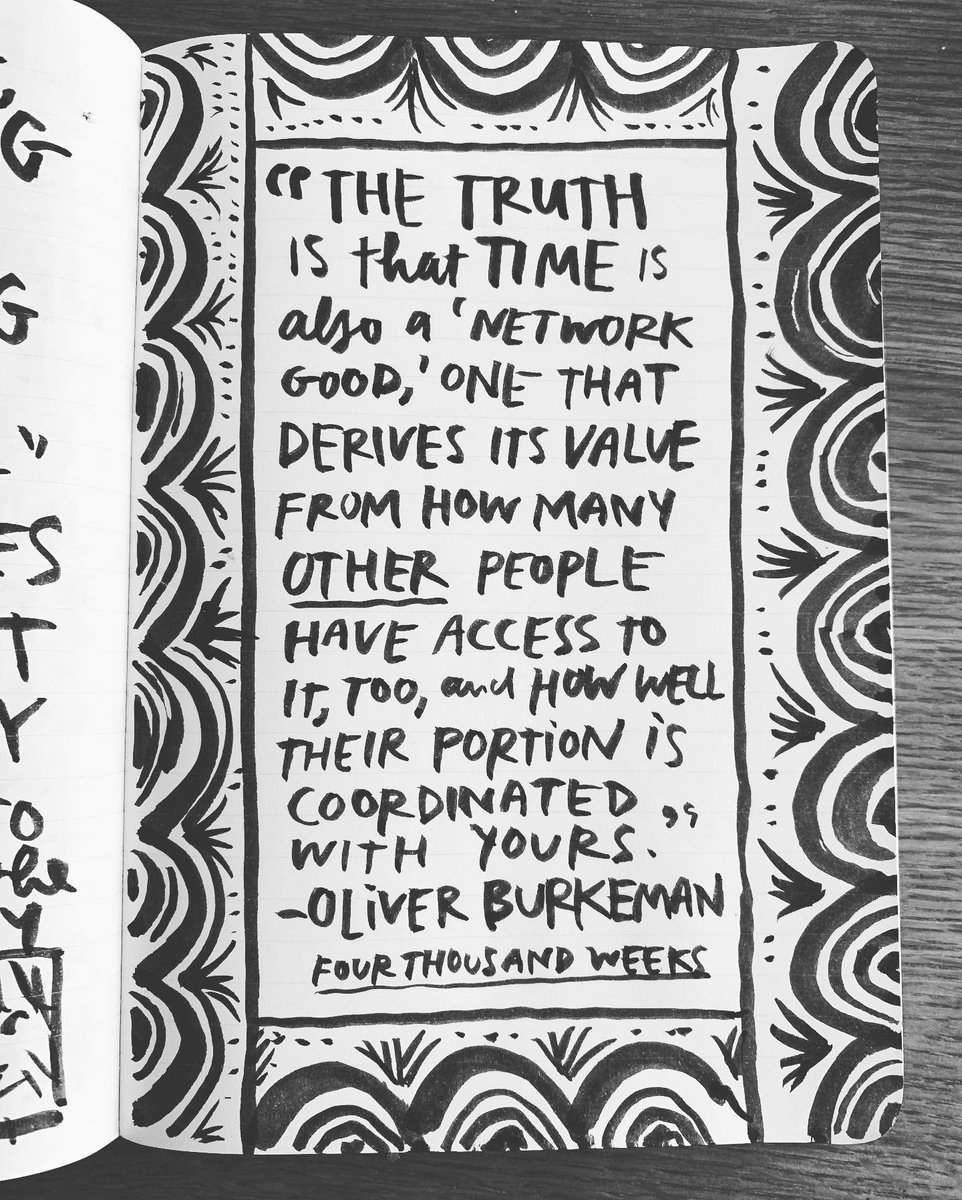 "THE TRUTH
IS that TIME IS
also a 'NETWORK
GOOD,' ONE THAT
DERIVES ITS VALUE
FROM HOW MANY
OTHER PEOPLE
HAVE ACCESS TO
IT, TOO, and HOW WELL
THEIR PORTION iS
COORDINATED
WITH YOURS."
-OLiVER BURKEMAN
FOUR THOUSAND WEEKS